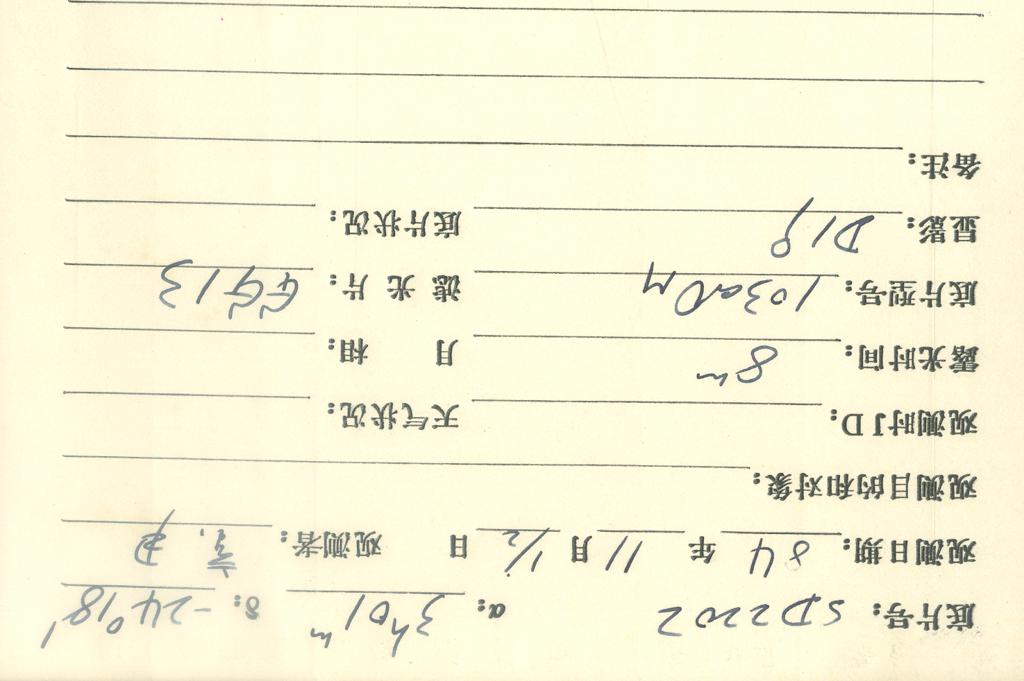 底片号: SD2202 α: 3ʰ01ᵐ δ: -24°18′
观测日期: 84 年 11 月 1/2 日 观测者:
观测目的和对象:
观测时JD: 天气状况:
露光时间: 8ᵐ 月 相:
底片型号: 103aD M 滤 光 片: GG13
显影: D19 底片状况:
备注: